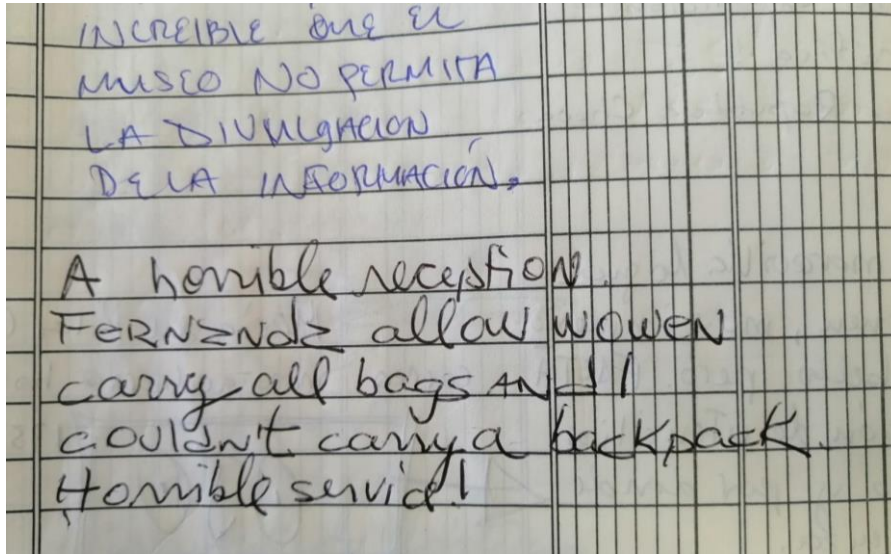 INCREIBLE QUE EL
MUSEO NO PERMITA
LA DIVULGACION
DE LA INFORMACIÓN.
A horrible reception.
FeRNaNda allow wowen
carry all bags AND I
couldn't carry a backpack.
Horrible servic!